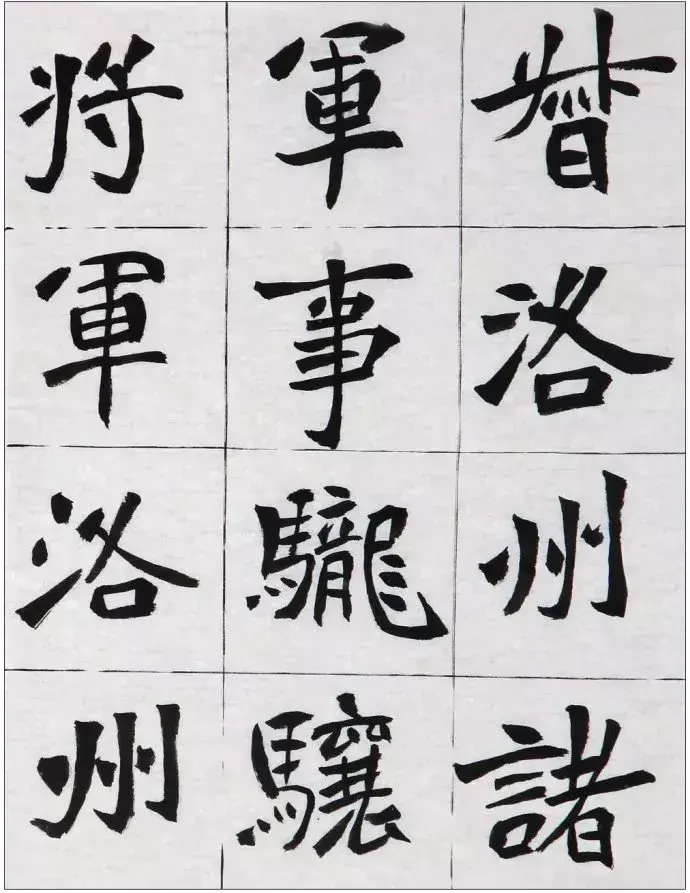 督洛州諸
軍事䮾驤
將軍洛州